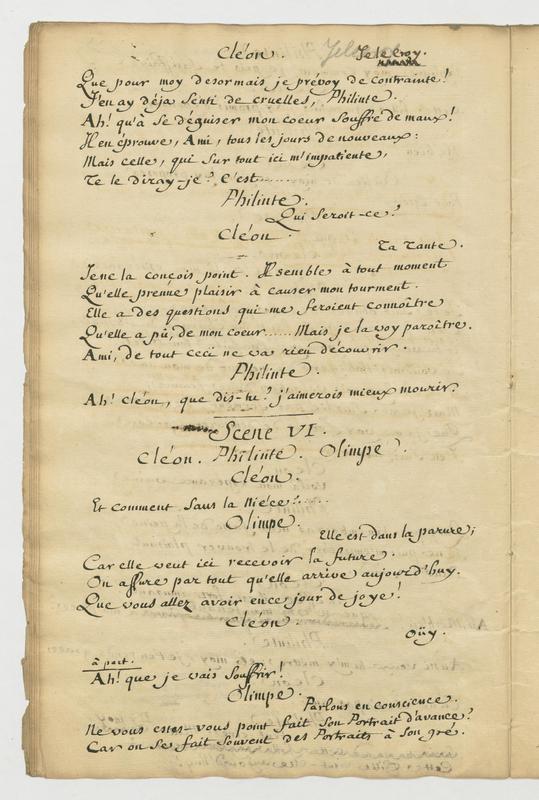 Cléon.
Je le croy.
Que pour moy desormais je prévoy de contrainte!
J'en ay déja senti de cruelles, Philinte.
Ah! qu'à se déguiser mon coeur souffre de maux!
Il en éprouve, Ami, tous les jours de nouveaux:
Mais celle, qui sur tout ici m'impatiente,
Te le diray-je? C'est......
Philinte.
Qui seroit-ce?
Cléon.
Ta Tante.
Je ne la conçois point. Il semble à tout moment
Qu'elle prenne plaisir à causer mon tourment.
Elle a des questions qui me feroient connoître
Qu'elle a pû, de mon coeur...... Mais je la voy paroître.
Ami, de tout ceci ne va rien découvrir.
Philinte.
Ah! Cléon, que dis-tu? j'aimerois mieux mourir.
Scene VI.
Cléon. Philinte. Olimpe.
Cléon.
Et comment sans la Niéce?.....
Olimpe.
Elle est dans la parure;
Car elle veut ici recevoir la future.
On assure par tout qu'elle arrive aujourd'huy.
Que vous allez avoir en ce jour de joye!
Cléon.
Oüy.
à part.
Ah! que je vais souffrir!
Olimpe.
Parlons en conscience.
Ne vous estes-vous point fait son Portrait d'avance?
Car on se fait souvent des Portraits à son gré.